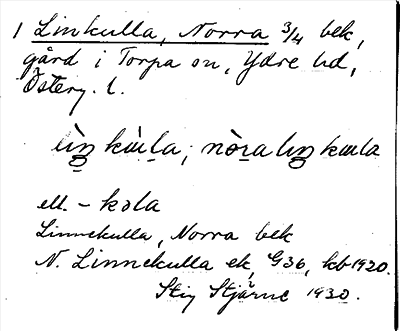 1 Linkulla, Norra 3/4 bek,
gård i Torpa sn, Ydre hd,
Österg. l.
nòra
ell. - kɔla
Linnekulla, Norra bek
N. Linnekulla ek, G36, kb 1920.
Stig Stjärne 1930.